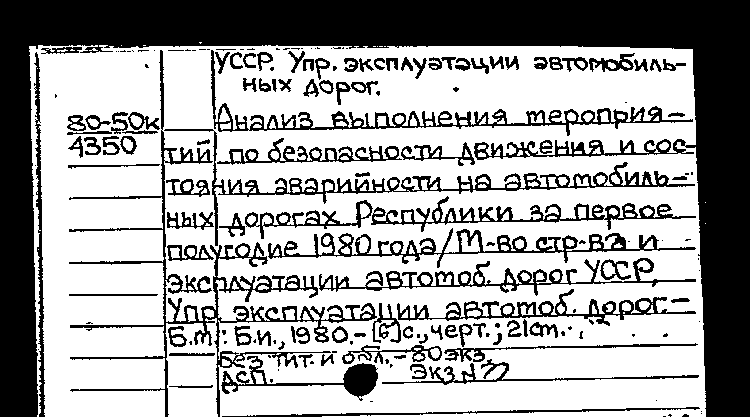 УССР. Упр. эксплуатации автомобиль-
ных дорог.
80-50к Анализ выполнения мероприя-
4350 тий по безопасности движения и сос-
тояния аварийности на автомобиль-
ных дорогах Республики за первое
полугодие 1980 года/М-во стр-ва и
эксплуатации автомоб. дорог УССР,
Упр. эксплуатации автомоб. дорог.-
Б.м.: Б.и., 1980.-[6]с., черт.; 21см.
Без тит. и обл.-80 экз.
ДСП. Экз. N